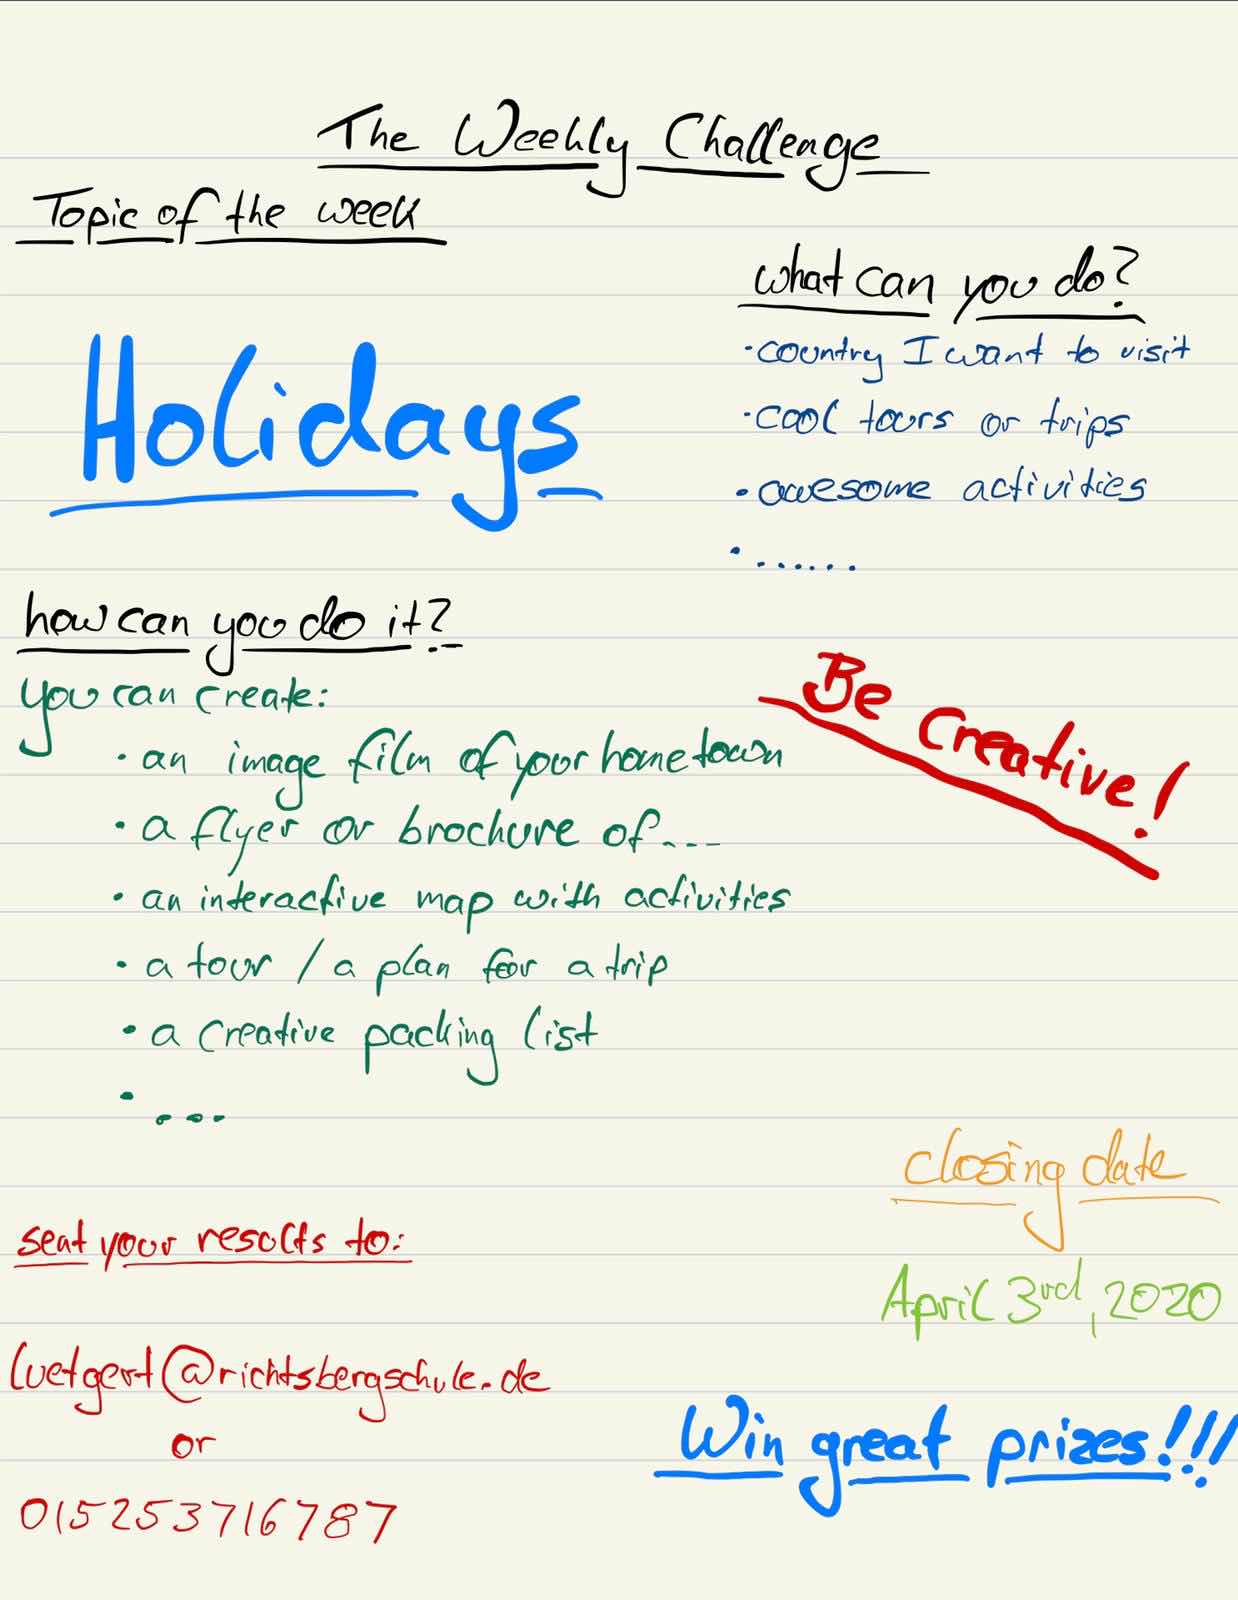 The Weekly Challenge
Topic of the week
Holidays
what can you do?
· country I want to visit
· cool tours or trips
· awesome activities
· ......
how can you do it?
you can create:
· an image film of your hometown
· a flyer or brochure of....
· an interactive map with activities
· a tour / a plan for a trip
· a creative packing list
· ....
Be creative!
closing date
April 3rd, 2020
seat your results to:
luetgert@richtsbergschule.de
or
015253716787
Win great prizes!!!